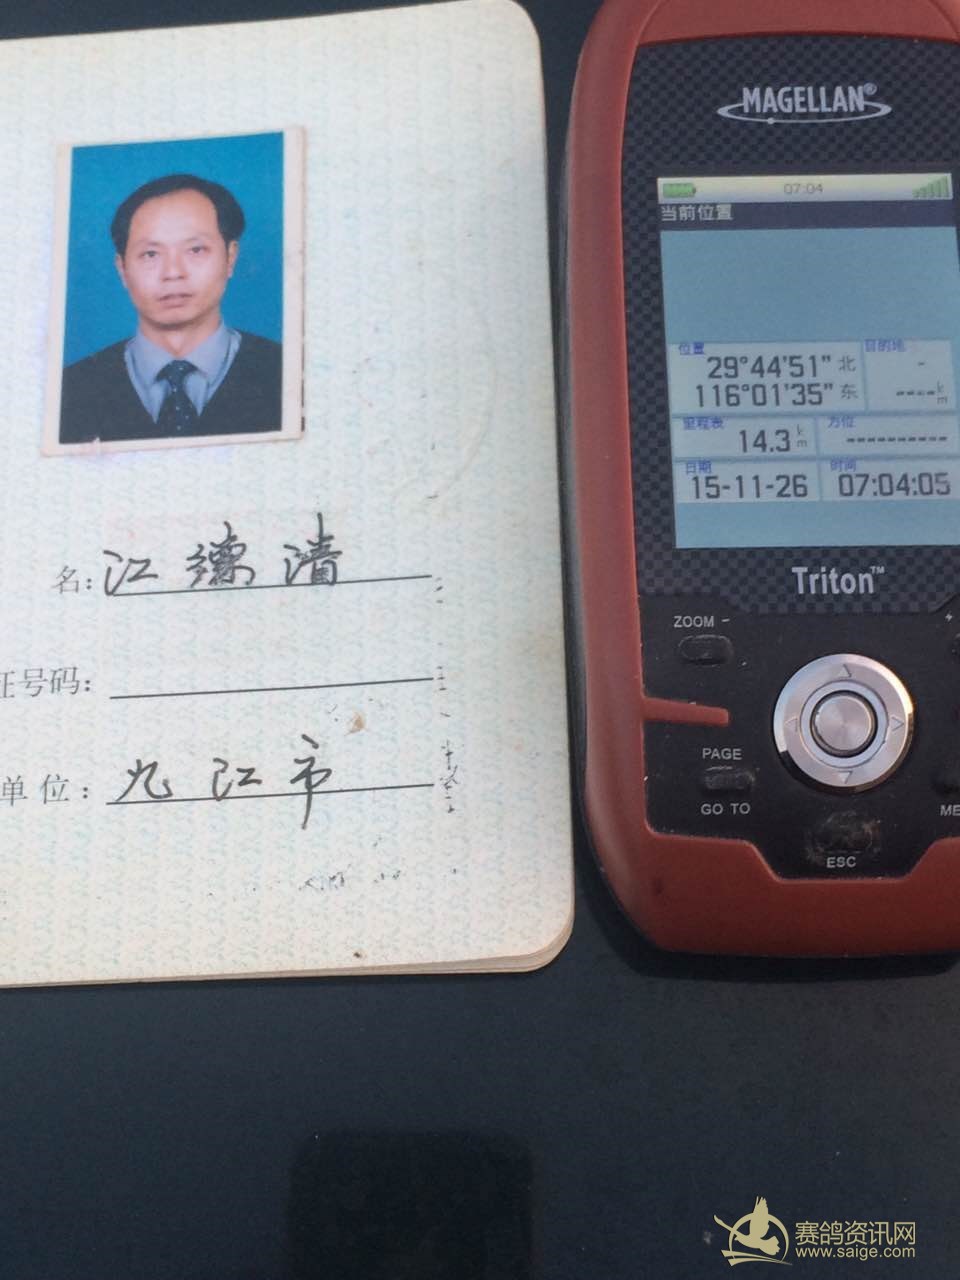 名：江德清
证号码：
单位：九江市
MAGELLAN®
07:04
当前位置
位置
29°44'51" 北
116°01'35" 东
目的地
-
----km
里程表
14.3 km
方位
----------
日期
15-11-26
时间
07:04:05
Triton™
ZOOM -
PAGE
GO TO
ESC
ME
赛鸽资讯网
www.saige.com